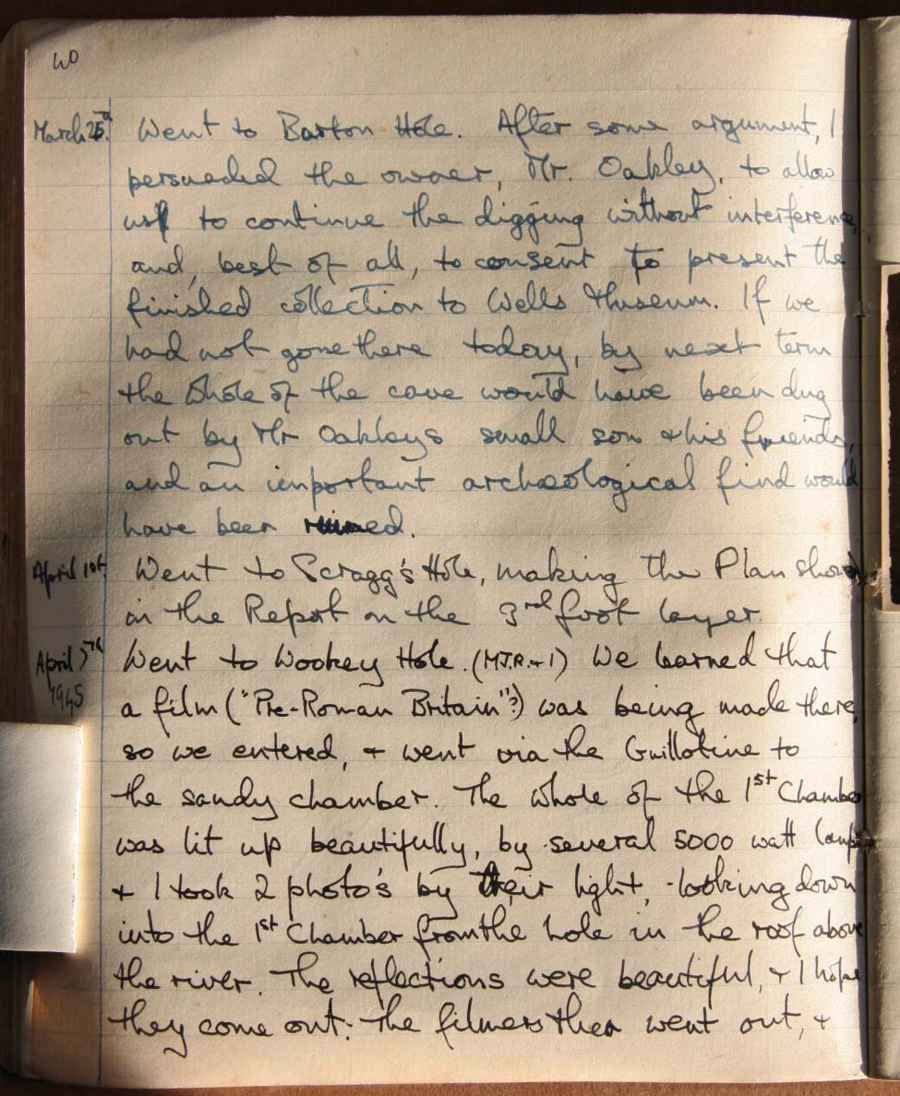 40
March 25th. Went to Barton Hole. After some argument, I
persuaded the owner, Mr. Oakley, to allow
us to continue the digging without interference
and, best of all, to consent to present the
finished collection to Wells Museum. If we
had not gone there today, by next term
the whole of the cave would have been dug
out by Mr Oakleys small son & his friends,
and an important archaeological find would
have been ruined.
April 1st. Went to Scragg's Hole, making the Plan
in the Report on the 3rd foot layer.
April 3rd Went to Wookey Hole. (M.J.R. + I) We learned that
1945 a film ("Pre-Roman Britain"?) was being made there,
so we entered, + went via the Guillotine to
the sandy chamber. The whole of the 1st Chamber
was lit up beautifully, by several 5000 watt lamps
+ I took 2 photo's by their light, - looking down
into the 1st Chamber from the hole in the roof above
the river. The reflections were beautiful, + I hope
they come out. The filmers then went out, +